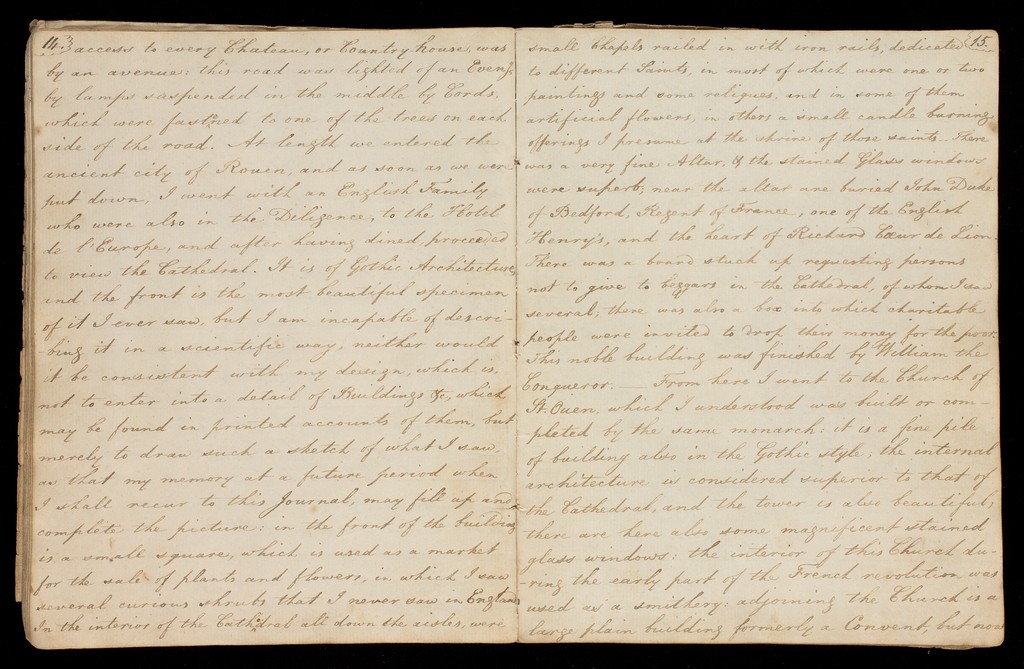 14.
access to every Chateau, or Country house, was
by an avenue: this road was lighted of an Even.g
by lamps suspended in the middle by Cords.
which were fastned to one of the trees on each
side of the road. At length we entered the
ancient city of Rouen, and as soon as we were
put down, I went with an English Family
who were also in the Diligence, to the Hotel
de l'Europe, and after having dined, proceeded
to view the Cathedral. It is of Gothic Architecture,
and the front is the most beautiful specimen
of it I ever saw, but I am incapable of descri-
-bing it in a scientific way, neither would
it be consistent with my design, which is,
not to enter into a detail of Buildings &c, which
may be found in printed accounts of them, but
merely to draw such a sketch of what I saw,
as that my memory at a future period when
I shall recur to this Journal, may fill up and
complete the picture: in the front of the building
is a small square, which is used as a market
for the sale of plants and flowers, in which I saw
several curious shrubs that I never saw in England
In the interior of the Cathedral all down the aisles, were
15.
small Chapels railed in with iron rails, dedicated
to different Saints, in most of which were one or two
paintings and some reliques, and in some of them
artificial flowers, in others a small candle burning,
offerings I presume at the shrine of those saints. There
was a very fine Altar, & the stained Glass windows
were superb; near the altar are buried John Duke
of Bedford, Regent of France, one of the English
Henry's, and the heart of Richard Cœur de Lion.
There was a board stuck up requesting persons
not to give to beggars in the Cathedral, of whom I saw
several; there was also a box into which charitable
people were invited to drop their money for the poor.
This noble building was finished by William the
Conqueror. — From here I went to the Church of
St. Ouen, which I understood was built or com-
-pleted by the same monarch: it is a fine pile
of building also in the Gothic style; the internal
architecture is considered superior to that of
the Cathedral, and the tower is also beautiful;
there are here also some magnificent stained
glass windows: the interior of this Church du-
-ring the early part of the French revolution was
used as a smithery: adjoining the Church is a
large plain building formerly a Convent, but now